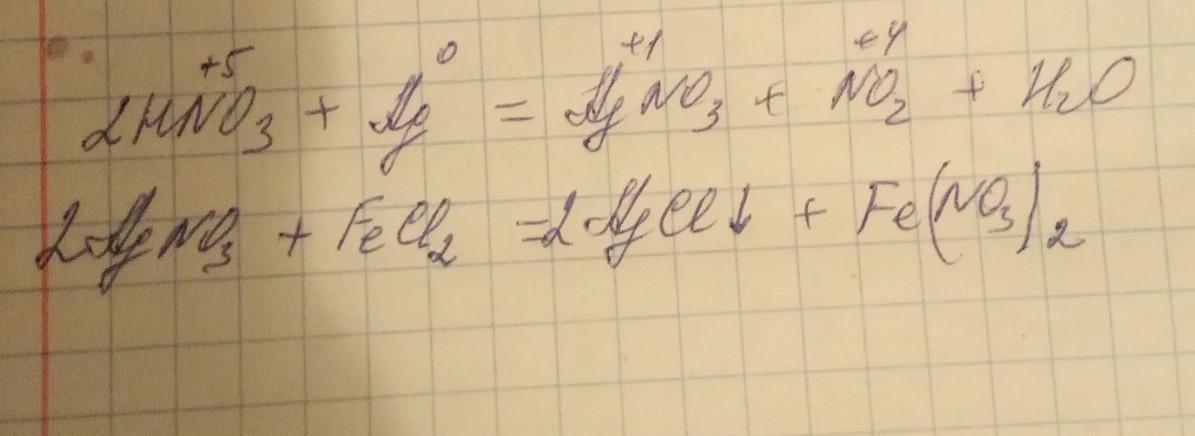 2HN⁺⁵O₃ + Ag⁰ = Ag⁺¹NO₃ + N⁺⁴O₂ + H₂O
2AgNO₃ + FeCl₂ = 2AgCl↓ + Fe(NO₃)₂